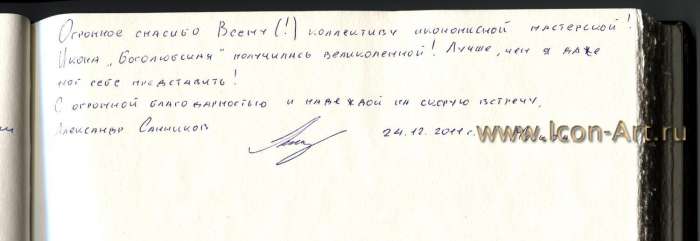 Огромное спасибо Всему (!) коллективу иконописной мастерской!
Икона „Боголюбская" получилась великолепной! Лучше, чем я даже
мог себе представить!
С огромной благодарностью и надеждой на скорую встречу,
Александр Санников 24.12.2011 г. www.Icon-Art.ru